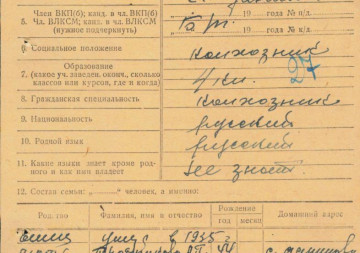 Член ВКП(б); канд. в чл. ВКП(б)
5. Чл. ВЛКСМ; канд. в чл. ВЛКСМ
(нужное подчеркнуть)
19 года № п/д.
б/п. 19 года № п/д.
6. Социальное положение колхозник
Образование
7. (какое уч. заведен. оконч., сколько
классов или курсов, где и когда)
4 кл. 27
8. Гражданская специальность колхозник
9. Национальность русский
10. Родной язык русский
11. Какие языки знает кроме род-
ного и как ими владеет
не знает
12. Состав семьи: человек, а именно:
Родство Фамилия, имя и отчество Рождение Домашний адрес
год месяц
умер в 1935 г